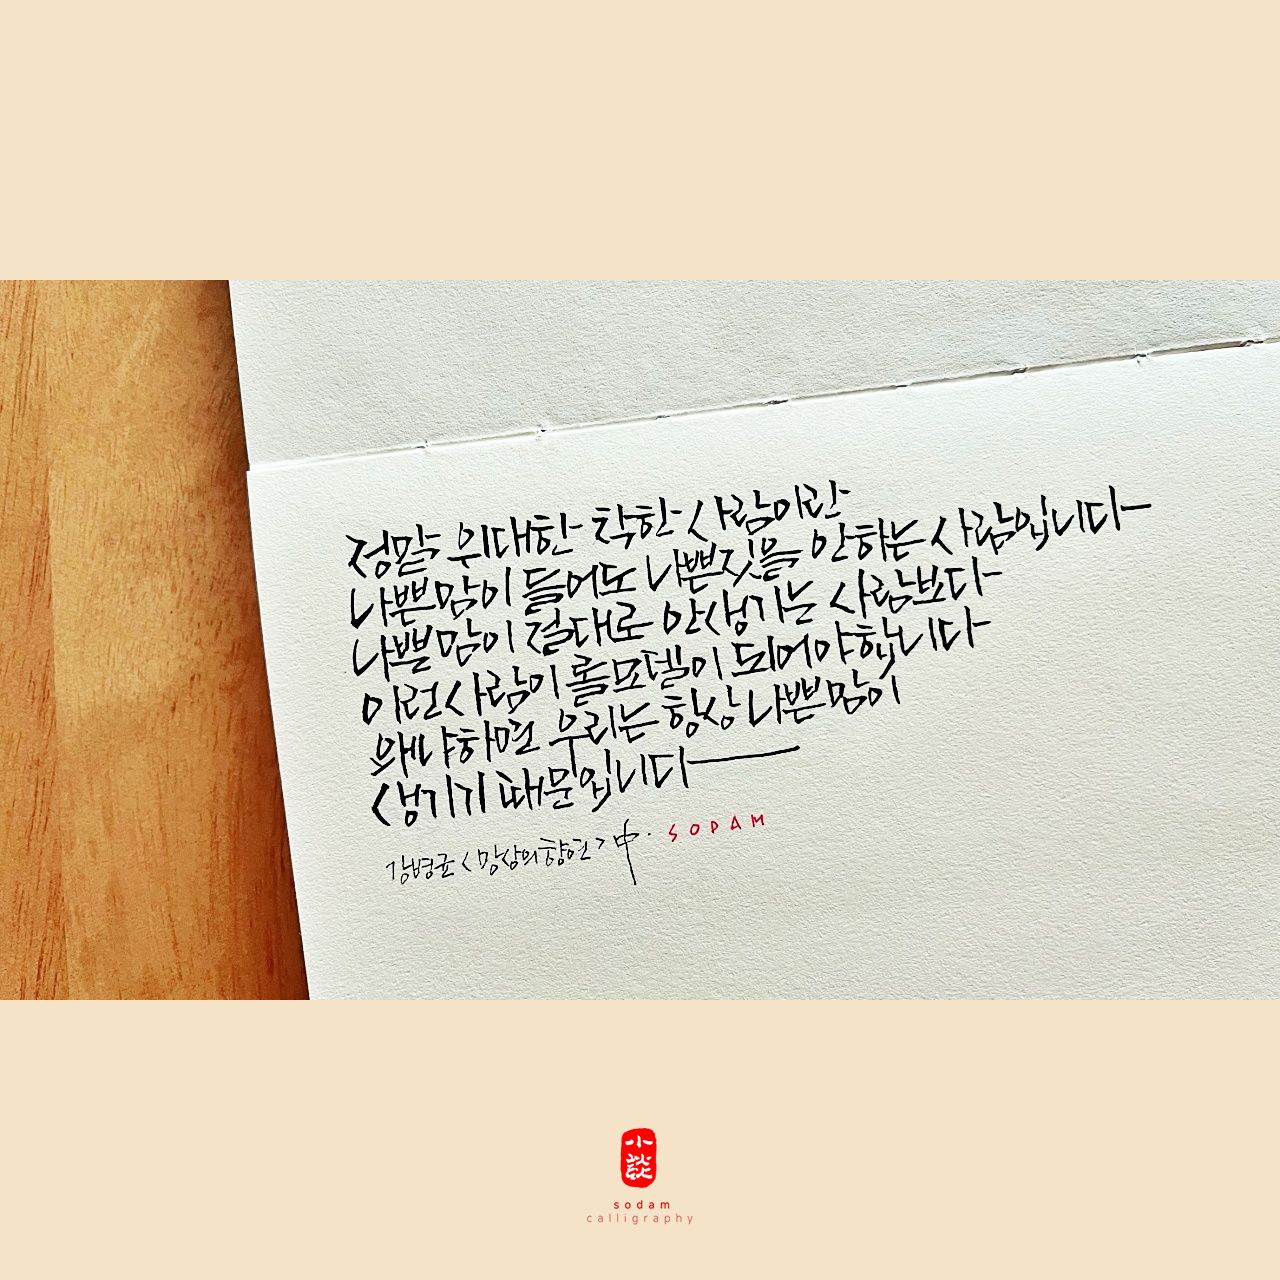 정말 위대한 착한 사람이란
나쁜맘이 들어도 나쁜짓을 안하는 사람입니다
나쁜맘이 절대로 안생기는 사람보다
이런 사람이 롤모델이 되어야합니다
왜냐하면 우리는 항상 나쁜맘이
생기기 때문입니다
강병균 <망상의향연> 中. SODAM
小談
sodam
calligraphy